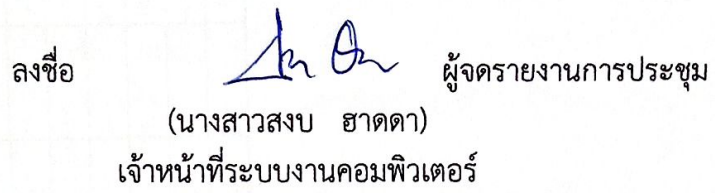 ลงชื่อ ผู้จดรายงานการประชุม
(นางสาวสงบ ฮาดดา)
เจ้าหน้าที่ระบบงานคอมพิวเตอร์